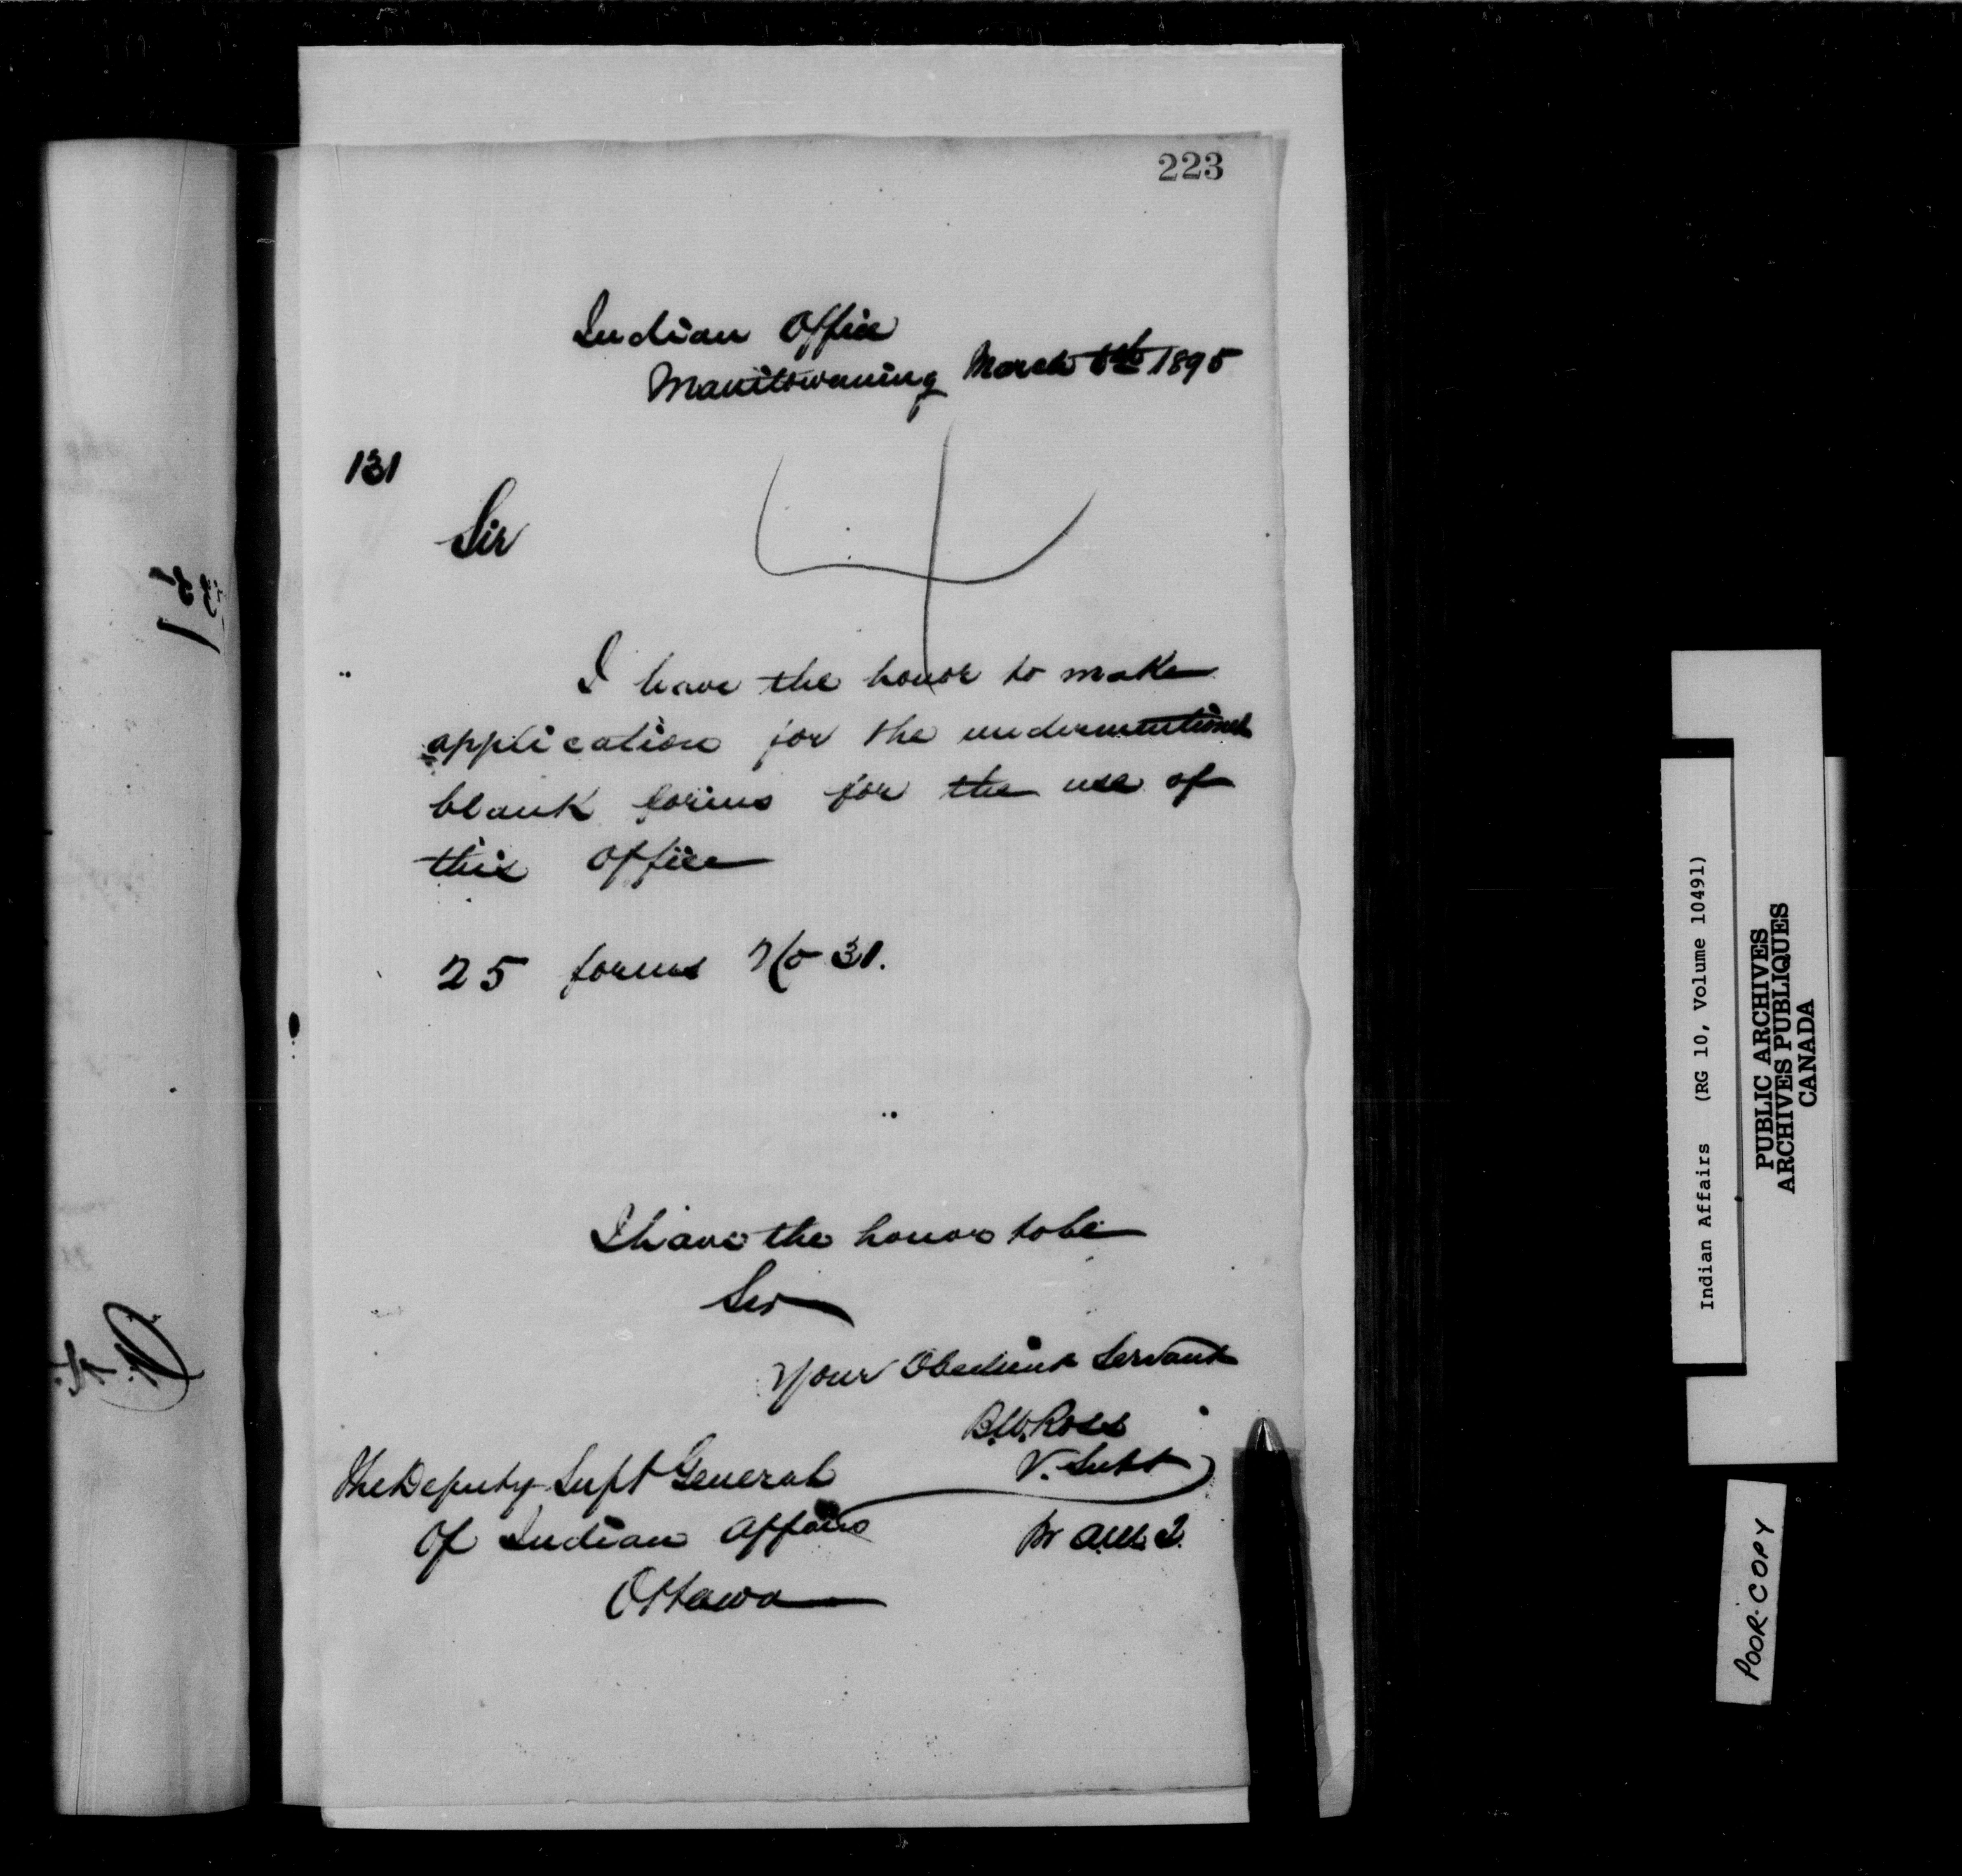 223
Indian Office
Manitowaning March 6th 1895
131
Sir
I have the honor to make
application for the undermentioned
blank forms for the use of
this Office
25 forms No 31.
I have the honor to be
Sir
Your Obedient Servant
B.W. Ross
V. Supt
The Deputy Supt General
Of Indian Affairs
Ottawa
Indian Affairs (RG 10, Volume 10491)
PUBLIC ARCHIVES
ARCHIVES PUBLIQUES
CANADA
POOR COPY